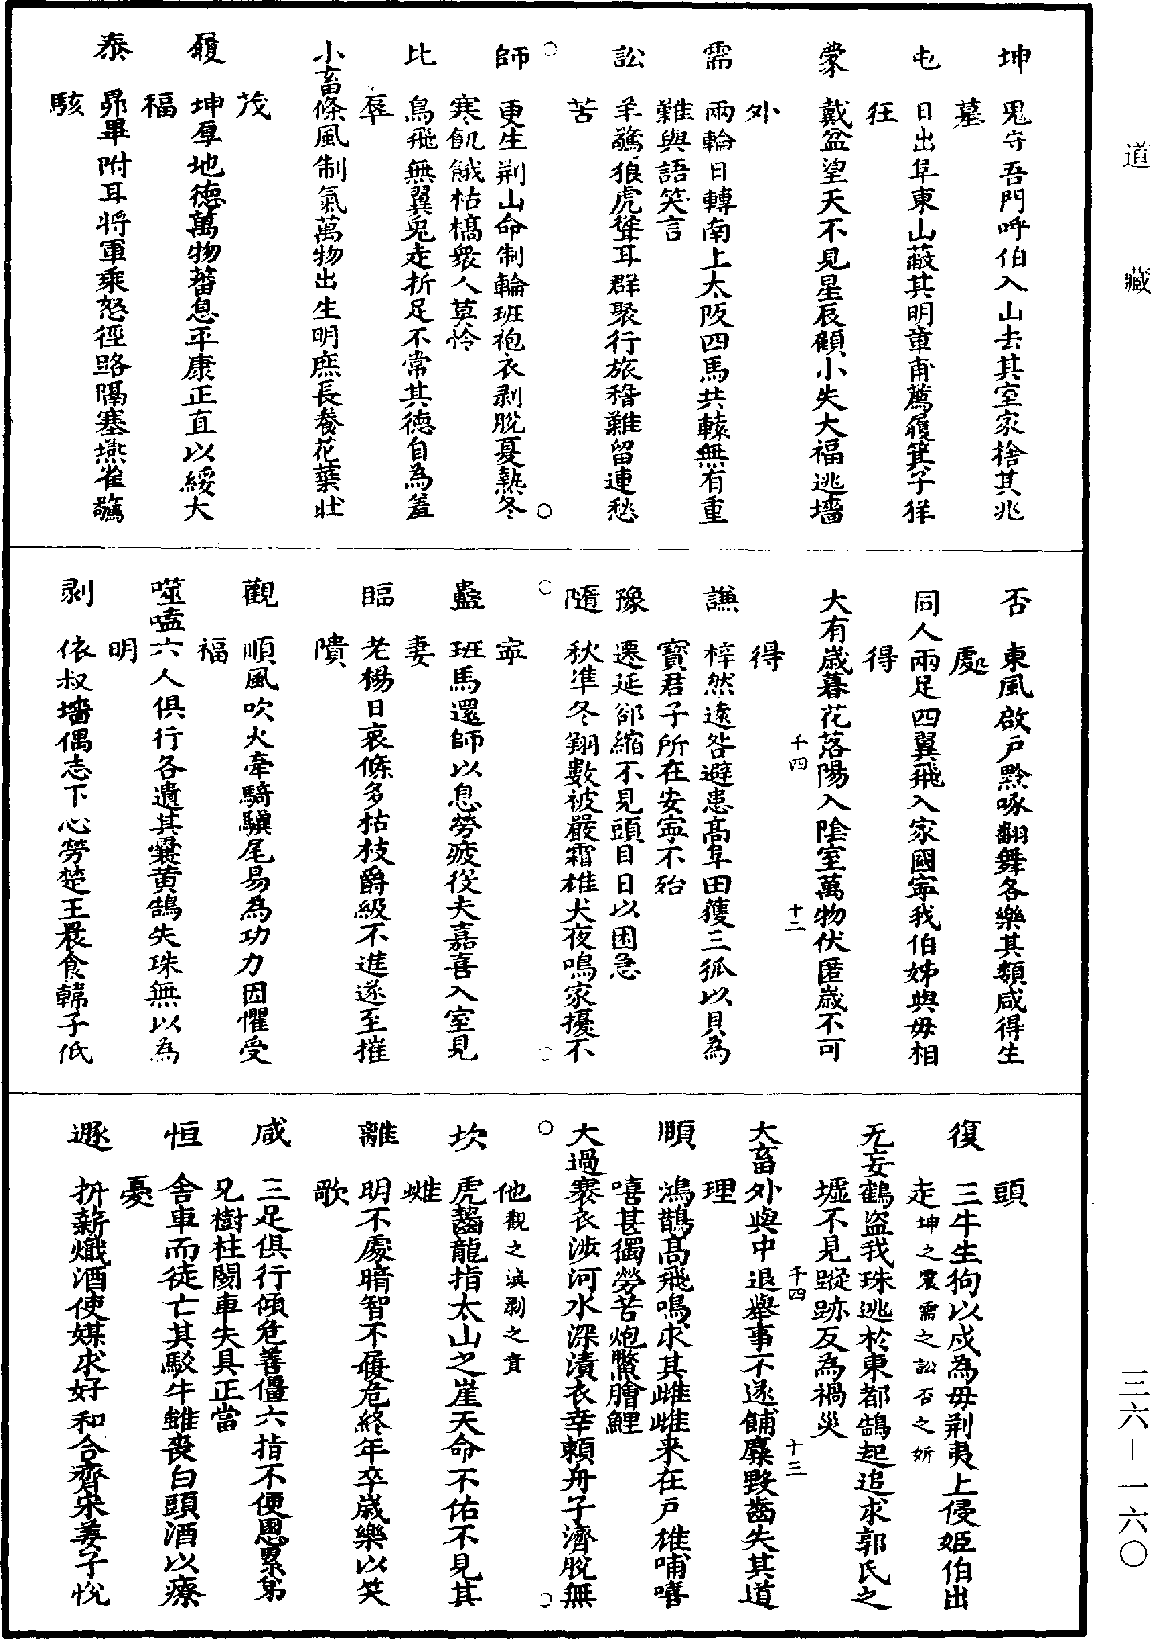 道藏
坤　鬼守吾門呼伯入山去其室家捨其兆
墓
屯　日出阜東山蔽其明章甫薦履箕子佯
狂
蒙　戴盆望天不見星辰顧小失大福逃墻
外
需　兩輪日轉南上大阪四馬共轅無有重
難與語笑言
訟　羊驚狼虎聳耳群聚行旅稽難留連愁
苦
師　更生荆山命制輪班袍衣剥脫夏熱冬
寒飢餓枯槁衆人莫怜
比　鳥飛無翼兎走折足不常其德自為羞
辱
小畜條風制氣萬物出生明庶長養花葉壯
茂
履　坤厚地德萬物蕃息平康正直以綏大
福
泰　昴畢附耳將軍乘怒徑路隔塞燕雀驚
駭
否　東風啟户黔啄翻舞各樂其類咸得生
處
同人兩足四翼飛入家國寧我伯姊與母相
得
大有歲暮花落陽入陰室萬物伏匿歲不可
得
千四　十二
謙　梓然逺咎避患高阜田獲三狐以貝為
寳君子所在安寧不殆
豫　遷延卻縮不見頭目日以困急
隨　秋凖冬翔數被嚴霜雄犬夜鳴家擾不
寧
蠱　班馬還師以息勞疲役夫嘉喜入室見
妻
臨　老楊日衰條多枯枝爵級不進遂至摧
隤
觀　順風吹火牽騎驥尾易為功力因懼受
福
噬嗑六人俱行各遺其囊黄鵠失珠無以為
明
剥　依叔墻偶志下心勞楚王晨食韓子低
頭
復　三牛生狗以戍為母荆夷上侵姬伯出
走坤之震需之訟否之妡
无妄鶴盗我珠逃於東都鵠起追求郭氏之
墟不見蹤跡反為禍災
千四　十三
大畜外與中退舉事不遂餔麋毀齒失其道
理
順　鴻鵲髙飛鳴求其雌雌来在户雄哺嘻
嘻甚獨勞苦炮鱉膾鯉
大過褰衣涉河水深漬衣幸賴舟子濟脫無
他觀之滇剥之賁
坎　虎齧龍指太山之崖天命不佑不見其
雌
離　明不處暗智不履危終年卒歲樂以笑
歌
咸　三足俱行傾危善僵六指不便恩累弟
兄樹柱閡車失具正當
恒　舍車而徒亡其駁牛雖喪白頭酒以療
憂
遯　折薪熾酒使媒求好和合齊宋姜子悅
三六—一六〇